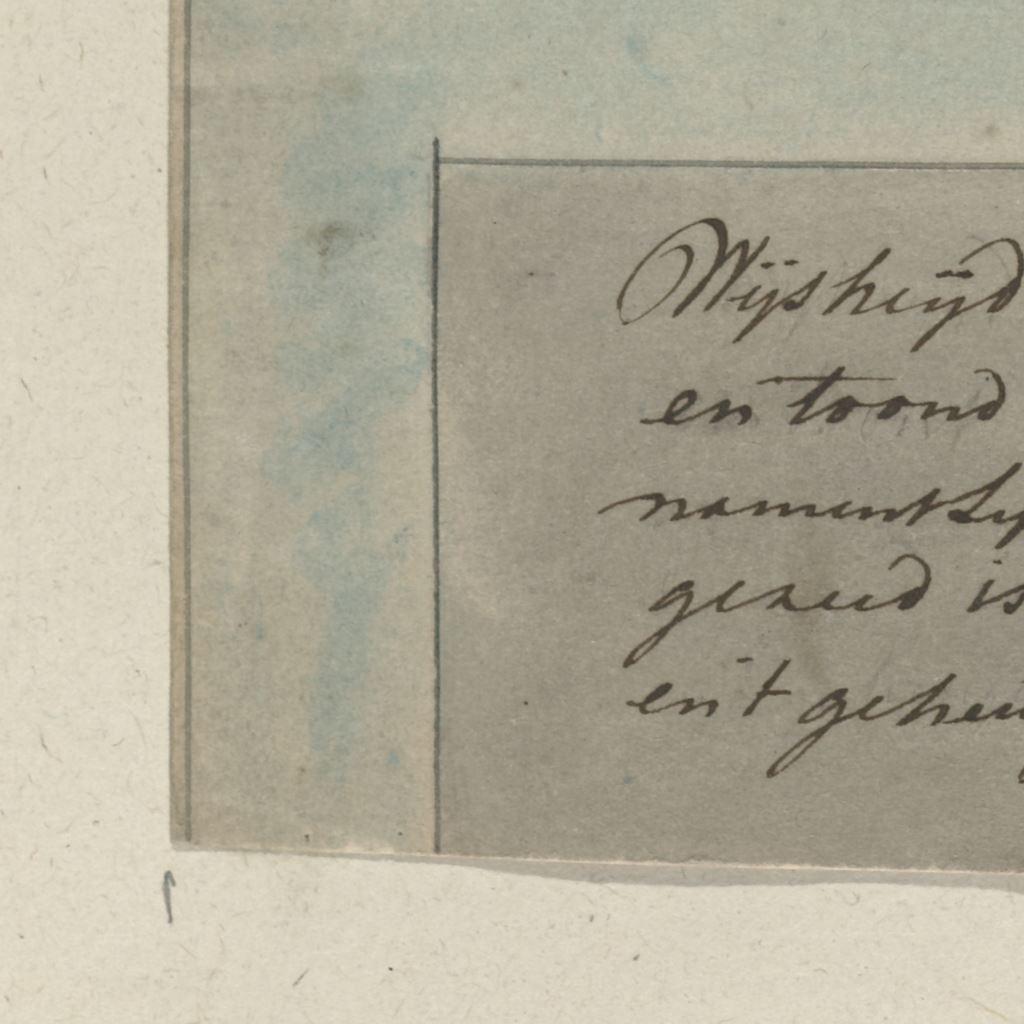 Wijsheijd
en toond
namentlij
geheed is
en't geheu